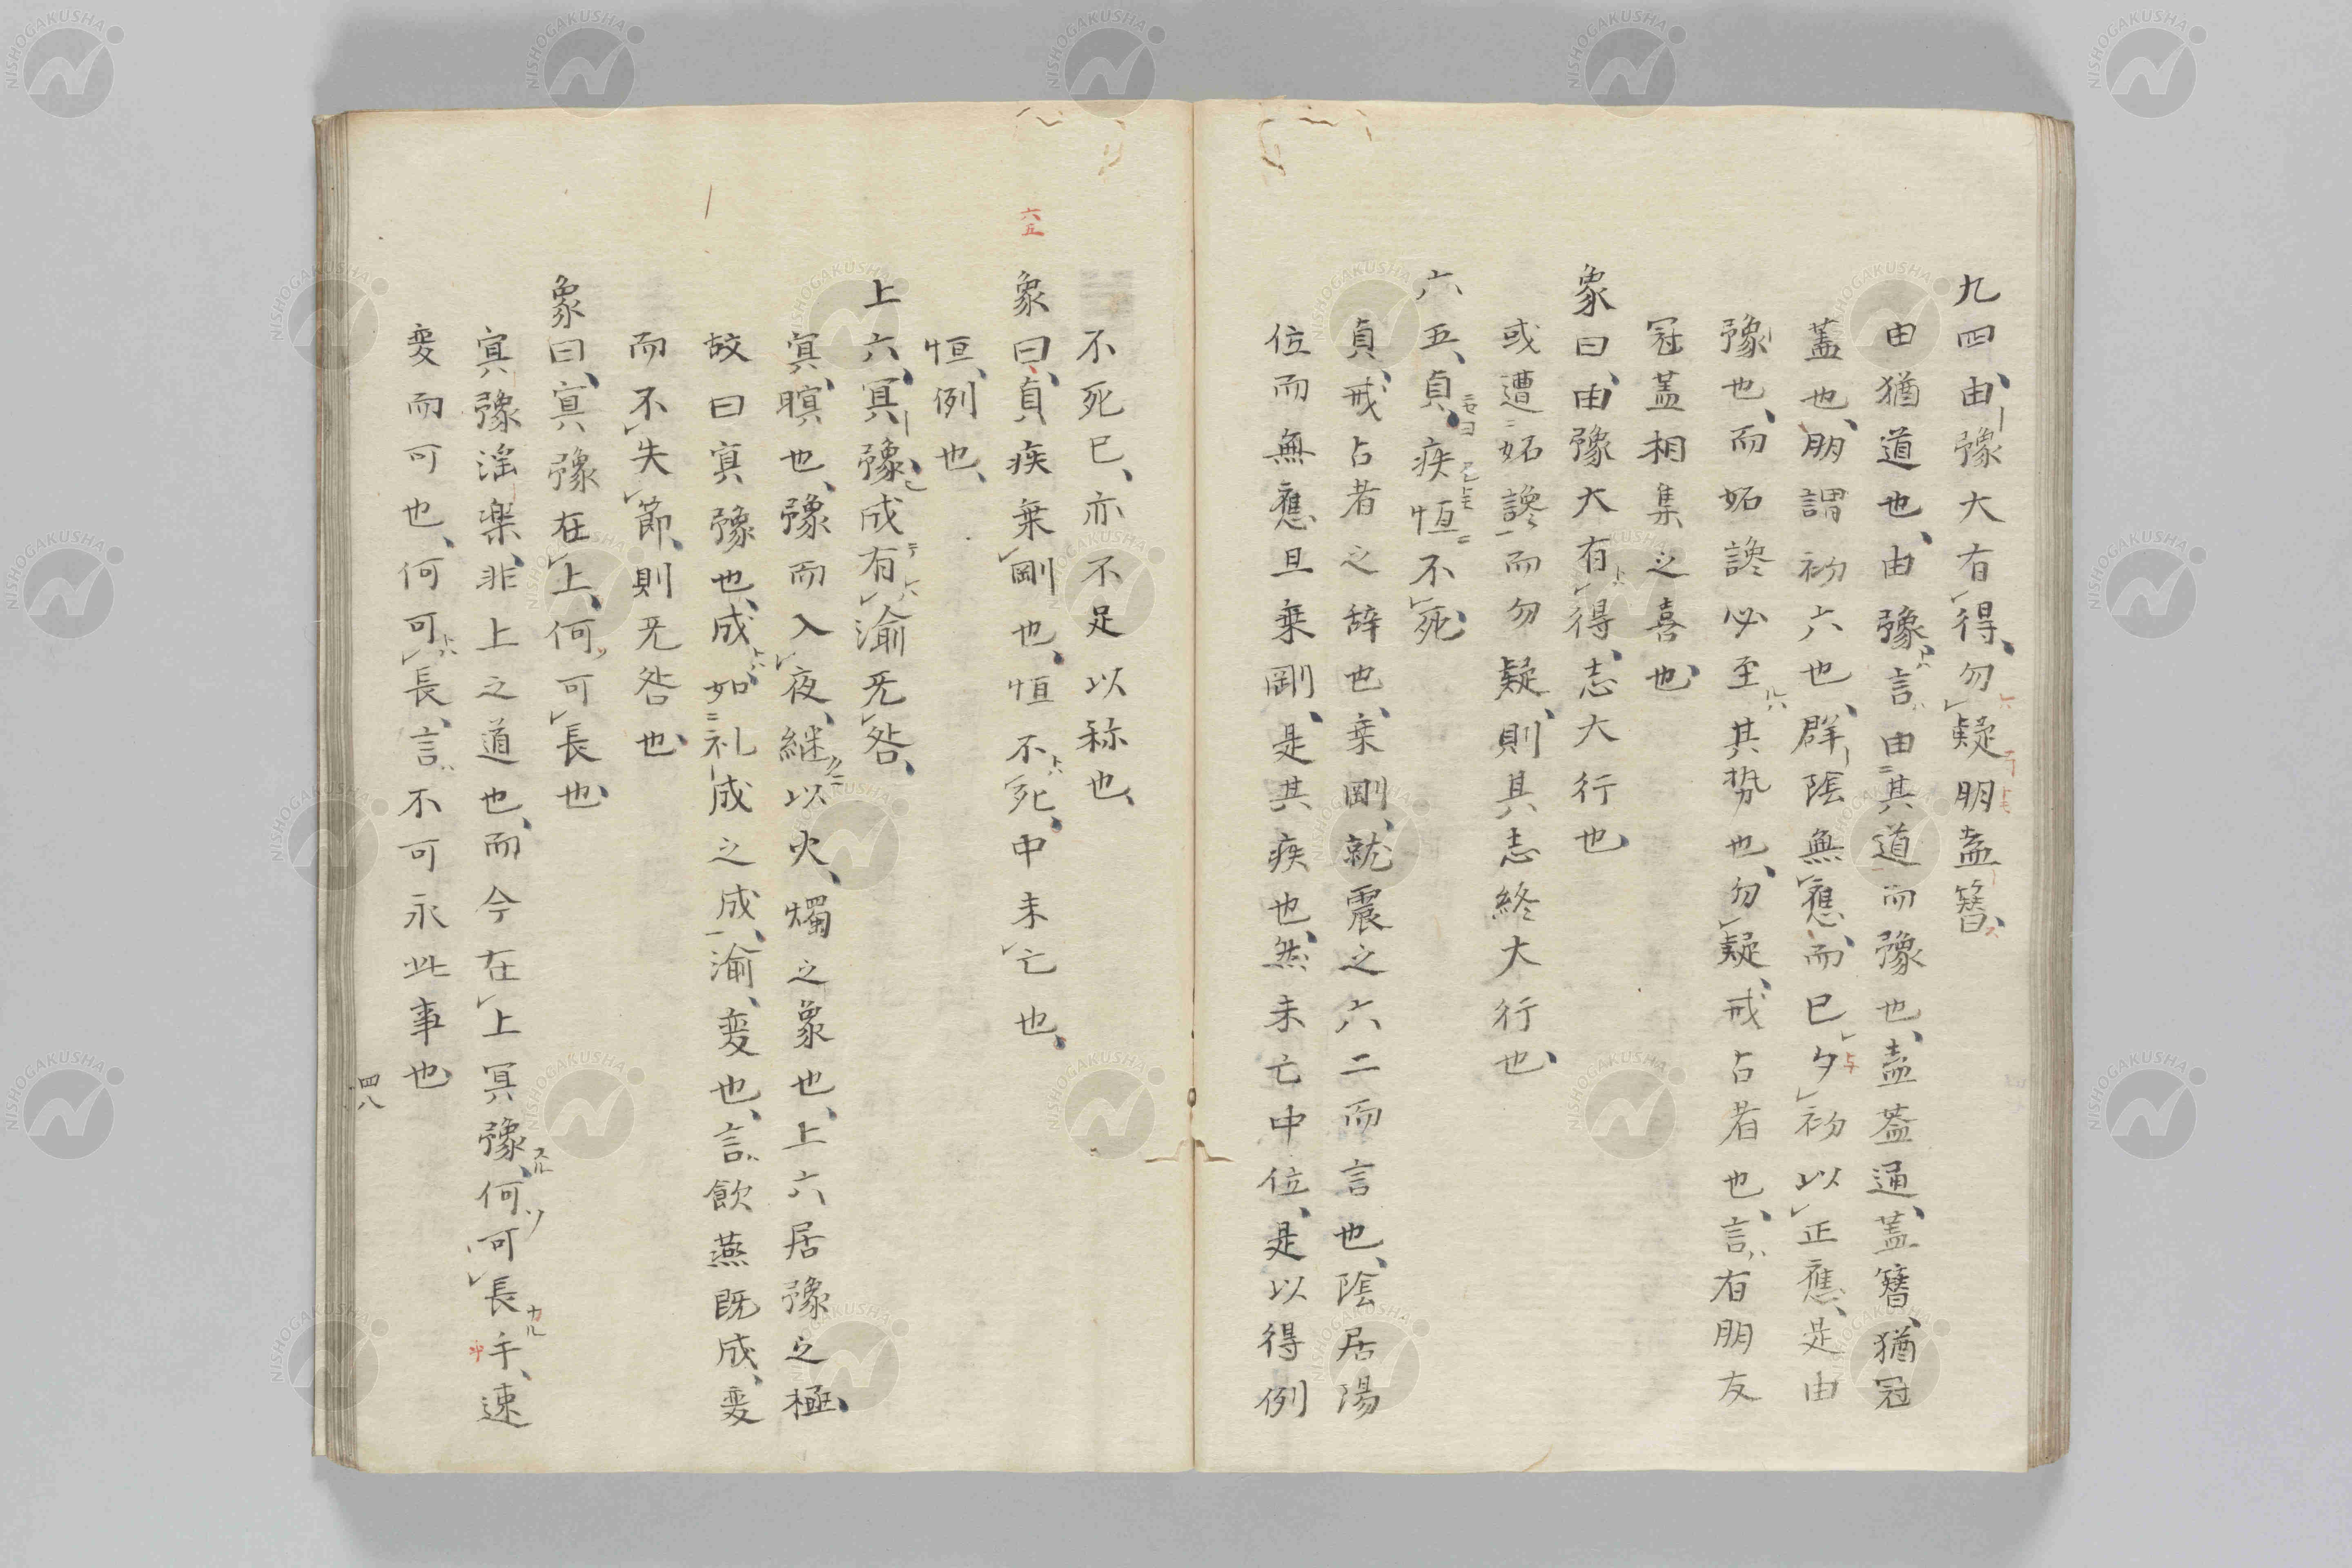 九四、由豫大有得、勿疑朋盍簪、
由猶道也、由豫、言由其道而豫也、盍蓋通、蓋簪、猶冠
蓋也、朋謂初六也、群陰無應、而已夕初以正應、是由
豫也、而妬讒必至其勢也、勿疑、戒占者也、言有朋友
冠蓋相集之喜也、
象曰、由豫大有得、志大行也、
或遭妬讒而勿疑、則其志終大行也、
六五、貞、疾恒不死、
貞、戒占者之辞也、乗剛、就震之六二而言也、陰居陽
位而無應且乗剛、是其疾也、然未亡中位、是以得例
不死已、亦不足以称也、
六五
象曰、貞疾乗剛也、恒不死、中未亡也、
恒、例也、
上六、冥豫、成有渝无咎、
冥、暝也、豫而入夜、継以火、燭之象也、上六居豫之極、
故曰冥豫也、成、如礼成之成、渝、変也、言飲燕既成、変
而不失節、則无咎也、
象曰、冥豫在上、何可長也、
冥豫淫楽、非上之道也、而今在上冥豫、何可長乎、速
変而可也、何可長、言不可永此事也、
四八
NISHOGAKUSHA